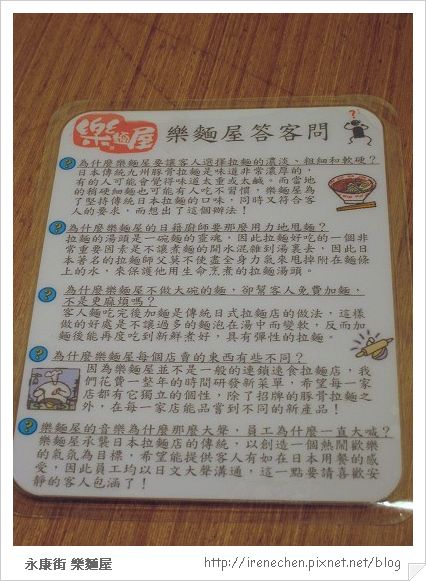 樂麵屋
樂麵屋答客問
?
? 為什麼樂麵屋要讓客人選擇拉麵的濃淡、粗細和軟硬?
日本傳統九州豚骨拉麵是味道非常濃厚的,
有的人可能會覺得味道太重或太鹹。而當地
的稍硬細麵也可能有人吃不習慣,樂麵屋為
了堅持傳統日本拉麵的口味,同時又符合客
人的要求,而想出了這個辦法!
? 為什麼樂麵屋的日籍廚師要那麼用力地甩麵?
拉麵的湯頭是一碗麵的靈魂,因此拉麵好吃的一個非
常重要因素是不讓煮麵的開水混雜到湯裏去,因此日
本著名的拉麵師父莫不使盡全身力氣來甩掉附在麵條
上的水,來保護他用生命烹煮的拉麵湯頭。
? 為什麼樂麵屋不做大碗的麵,卻幫客人免費加麵,
不是更麻煩嗎?
客人麵吃完後加麵是傳統日式拉麵店的做法,這樣
做的好處是不讓過多的麵泡在湯中而變軟,反而加
麵後能再度吃到新鮮煮好,具有彈性的拉麵。
? 為什麼樂麵屋每個店賣的東西有些不同?
因為樂麵屋並不是一般的連鎖速食拉麵店,我
們花費一整年的時間研發新菜單,希望每一家
店都有它獨立的個性,除了招牌的豚骨拉麵之
外,在每一家店能品嘗到不同的新產品!
? 樂麵屋的音樂為什麼那麼大聲,員工為什麼一直大喊?
樂麵屋承襲日本拉麵店的傳統,以創造一個熱鬧歡樂
的氣氛為目標,希望能提供客人有如在日本用餐的感
受,因此員工均以日文大聲溝通,這一點要請喜歡安
靜的客人包涵了!
永康街 樂麵屋
http://irenechen.pixnet.net/blog